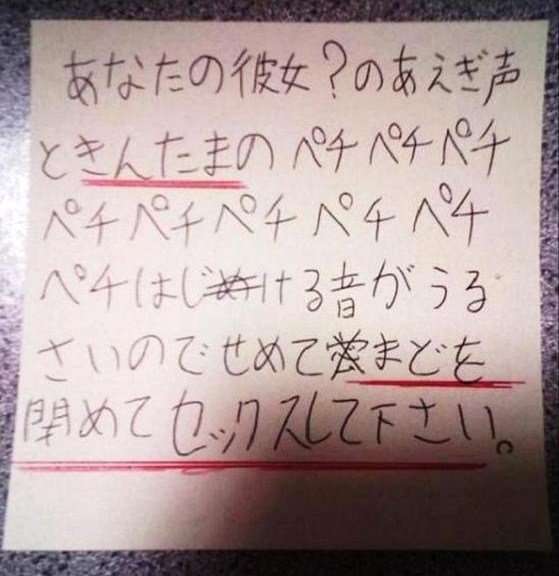 あなたの彼女?のあえぎ声
ときんたまの ペチペチペチ
ペチペチペチ ペチ ペチ
ペチはじける音がうる
さいのでせめてまどを
閉めてセックスして下さい。